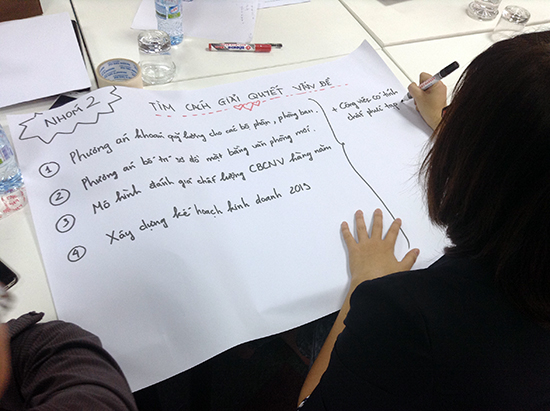 NHÓM 2
TÌM CÁCH GIẢI QUYẾT VẤN ĐỀ
1 Phương án khoán quỹ lương cho các bộ phận, phòng ban.
2 Phương án bố trí sơ đồ mặt bằng văn phòng mới.
3 Mô hình đánh giá chất lượng CBCNV hàng năm
4 Xây dựng kế hoạch kinh doanh 2019
+ Công việc có tính
chất phức tạp